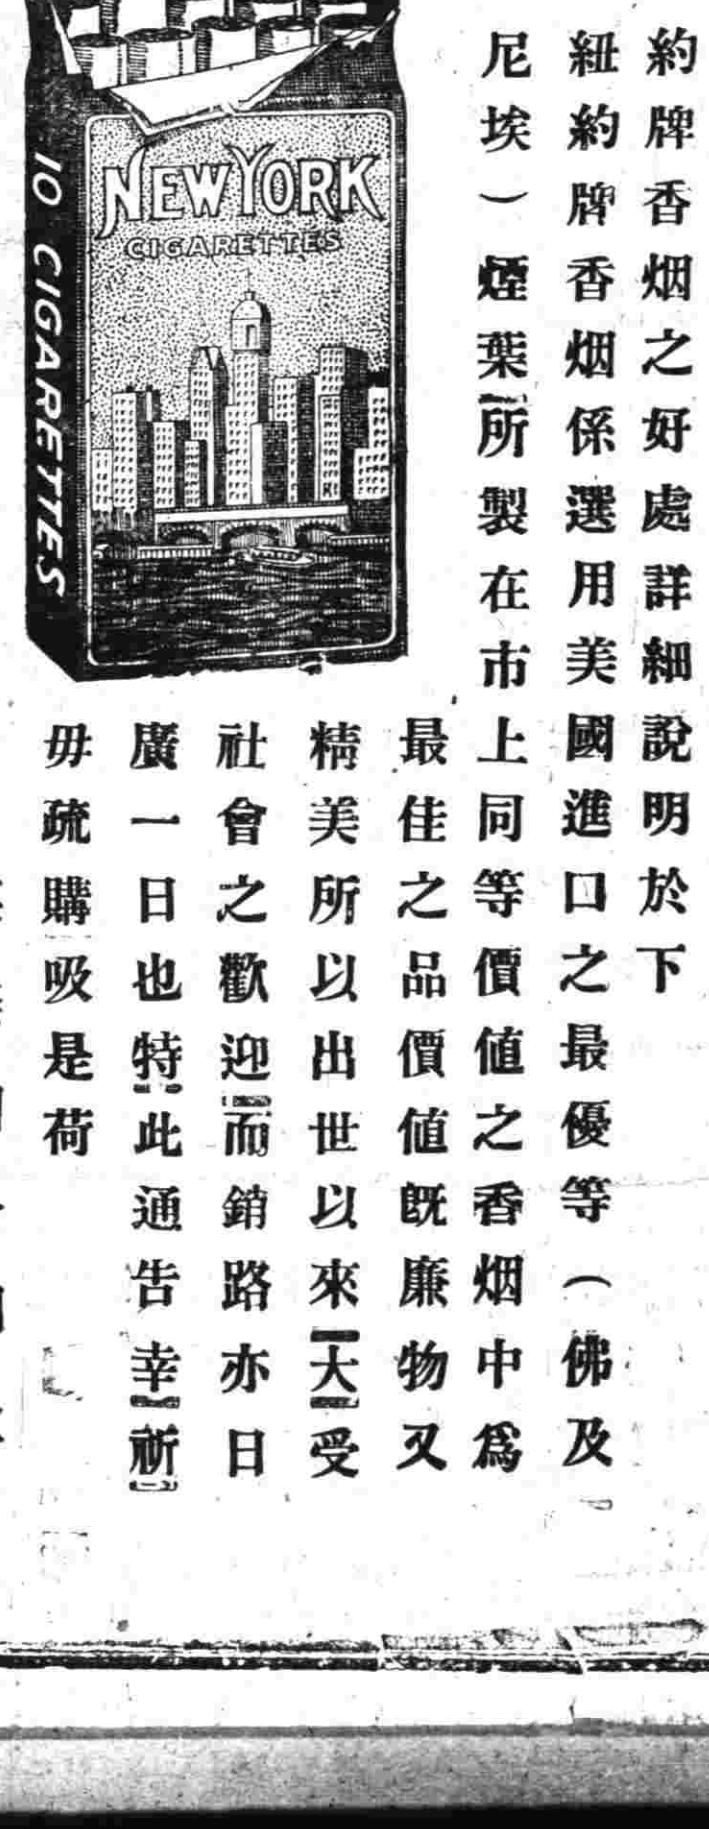 約牌香烟之好處詳細說明於下
紐約牌香烟係選用美國進口之最優等（佛及
尼埃）煙葉所製在市上同等價値之香烟中爲
最佳之品價値旣廉物又
精美所以出世以來大受
社會之歡迎而銷路亦日
廣一日也特此通告幸祈
毋疏購吸是荷
NEW YORK
CIGARETTES
10 CIGARETTES